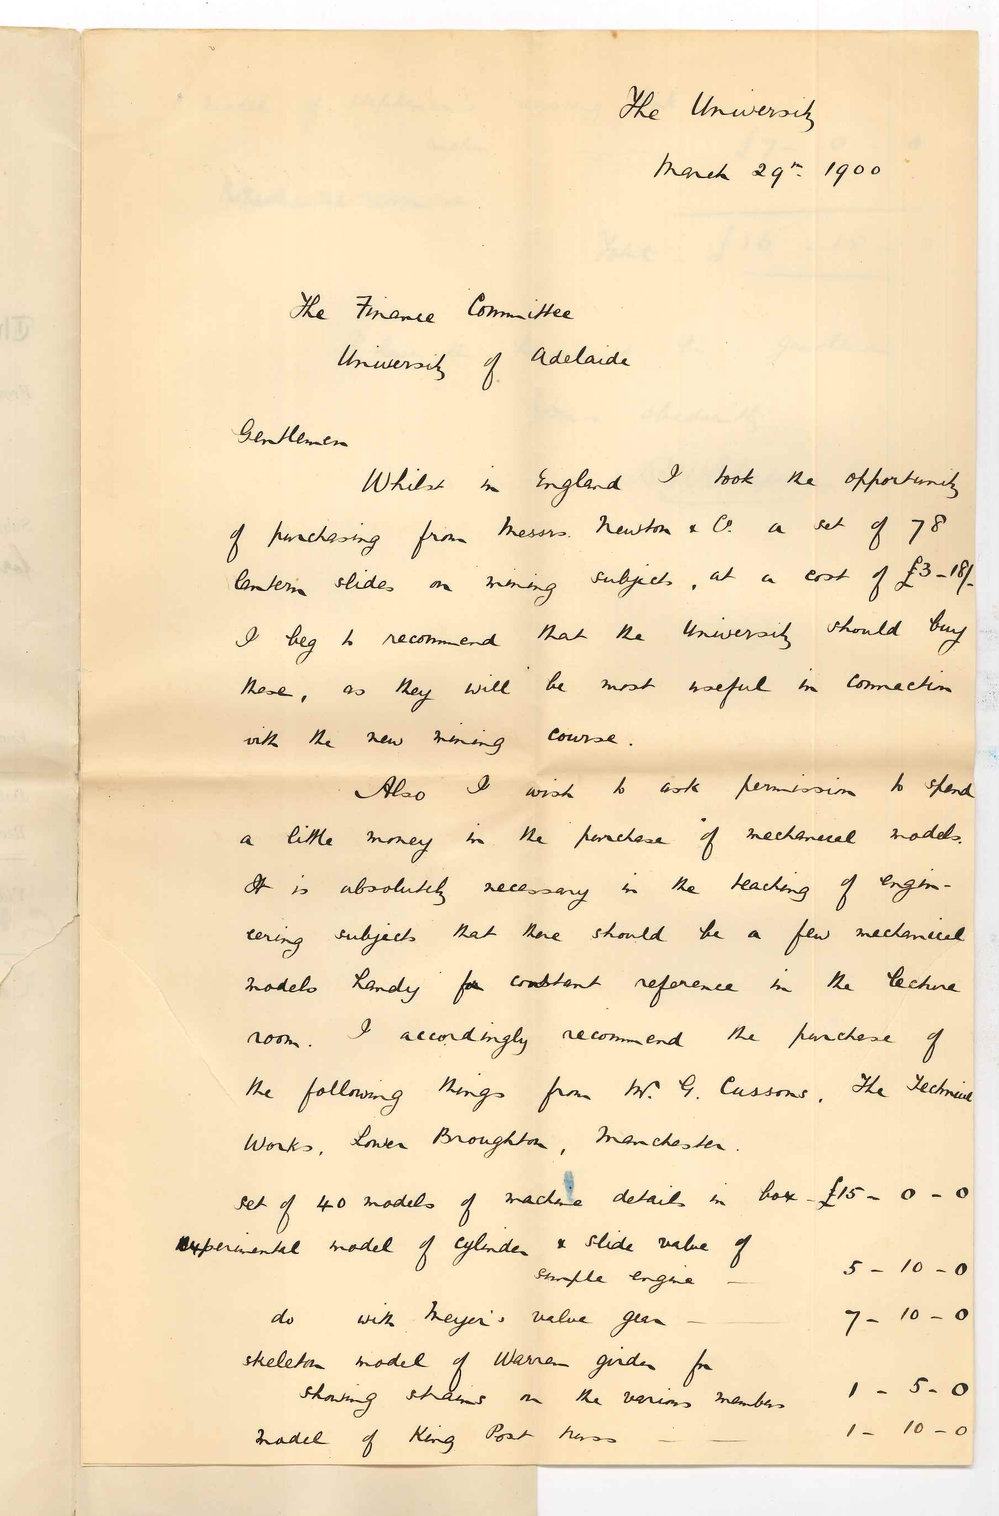 The University
March 29th 1900
The Finance Committee
University of Adelaide
Gentlemen
Whilst in England I took the opportunity
of purchasing from Messrs. Newton & Co. a set of 78
lantern slides on mining subjects, at a cost of £3-18/-
I beg to recommend that the University should buy
these, as they will be most useful in connection
with the new mining course.
Also I wish to ask permission to spend
a little money in the purchase of mechanical models.
It is absolutely necessary in the teaching of engin-
eering subjects that there should be a few mechanical
models handy for constant reference in the lecture
room. I accordingly recommend the purchase of
the following things from Mr. G. Cussons, The Technical
Works, Lower Broughton, Manchester.
set of 40 models of machine details in box - £15 - 0 - 0
experimental model of cylinder & slide valve of
simple engine — 5 - 10 - 0
do with Meyer's valve gear — 7 - 10 - 0
skeleton model of Warren girder for
showing strains on the various members 1 - 5 - 0
model of King Post truss — — 1 - 10 - 0